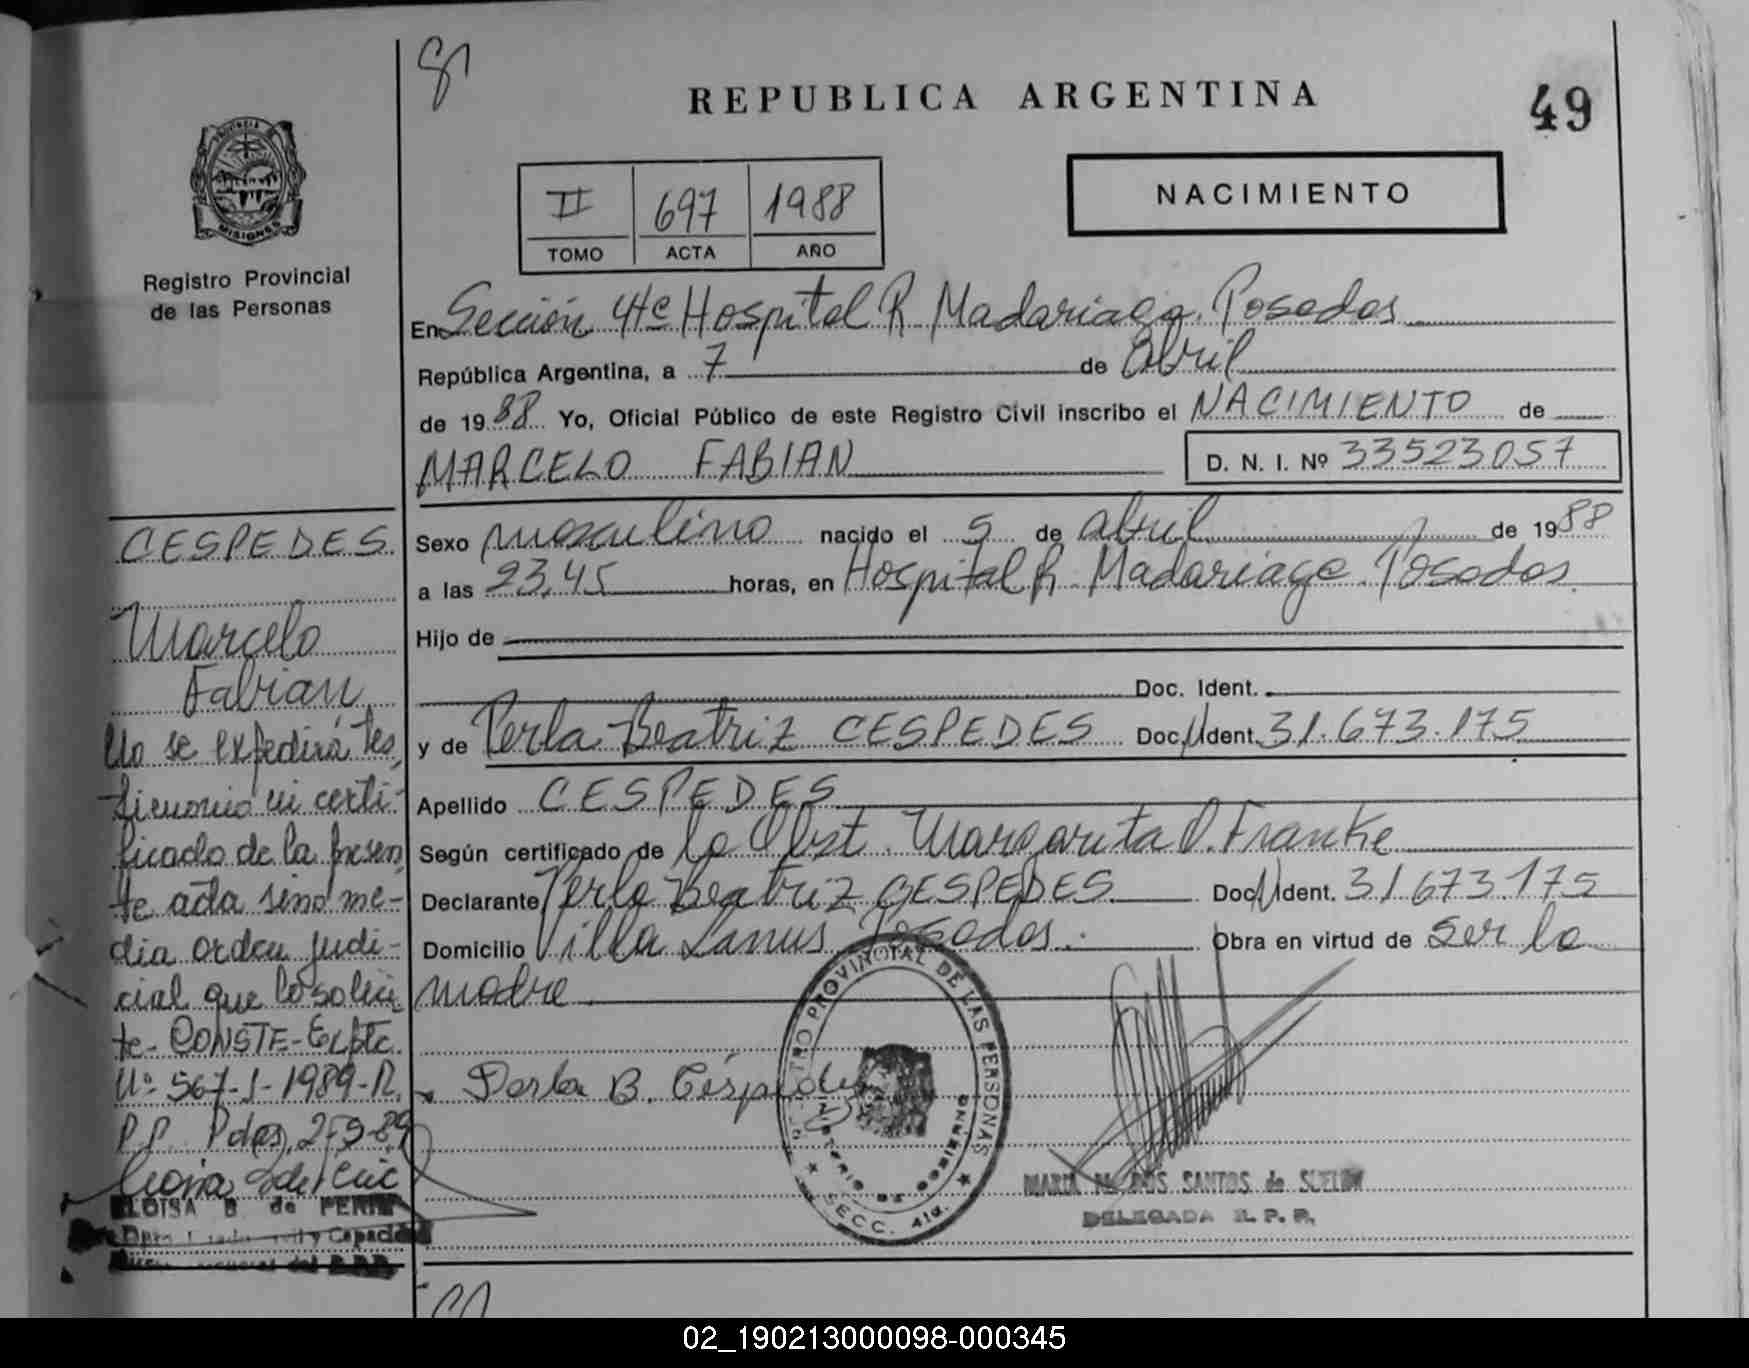 REPUBLICA ARGENTINA
49
PROVINCIA DE
MISIONES
Registro Provincial
de las Personas
II 697 1988
TOMO ACTA AÑO
NACIMIENTO
En Sección 4ta Hospital R Madariaga. Posadas
República Argentina, a 7 de abril
de 1988 Yo, Oficial Público de este Registro Civil inscribo el NACIMIENTO de
MARCELO FABIAN D. N. I. Nº 33523057
Sexo masculino nacido el 5 de abril de 1988
a las 23,45 horas, en Hospital R. Madariaga. Posadas.
Hijo de
Doc. Ident.
y de Perla Beatriz CESPEDES Doc. Ident. 31.673.175
Apellido CESPEDES
Según certificado de la Obst. Margarita O. Franke
Declarante Perla Beatriz CESPEDES Doc. Ident. 31.673.175
Domicilio Villa Lanus Posadas. Obra en virtud de ser la
madre.
Perla B. Céspedes
REGISTRO PROVINCIAL DE LAS PERSONAS
MINISTERIO DE GOBIERNO
SECC. 4ta.
MARIA DOS SANTOS de
DELEGADA R. P. P.
CESPEDES
Marcelo
Fabian
No se expedirá tes
timonio ni certi-
ficado de la presen
te acta sino me-
dia orden judi-
cial que lo solici
te- CONSTE- Expte.
Nº 567-J-1989-R.
P.P. Pdas, 2-9-89
ELOISA B de
y Capacidad
del R.P.P.
02_190213000098-000345